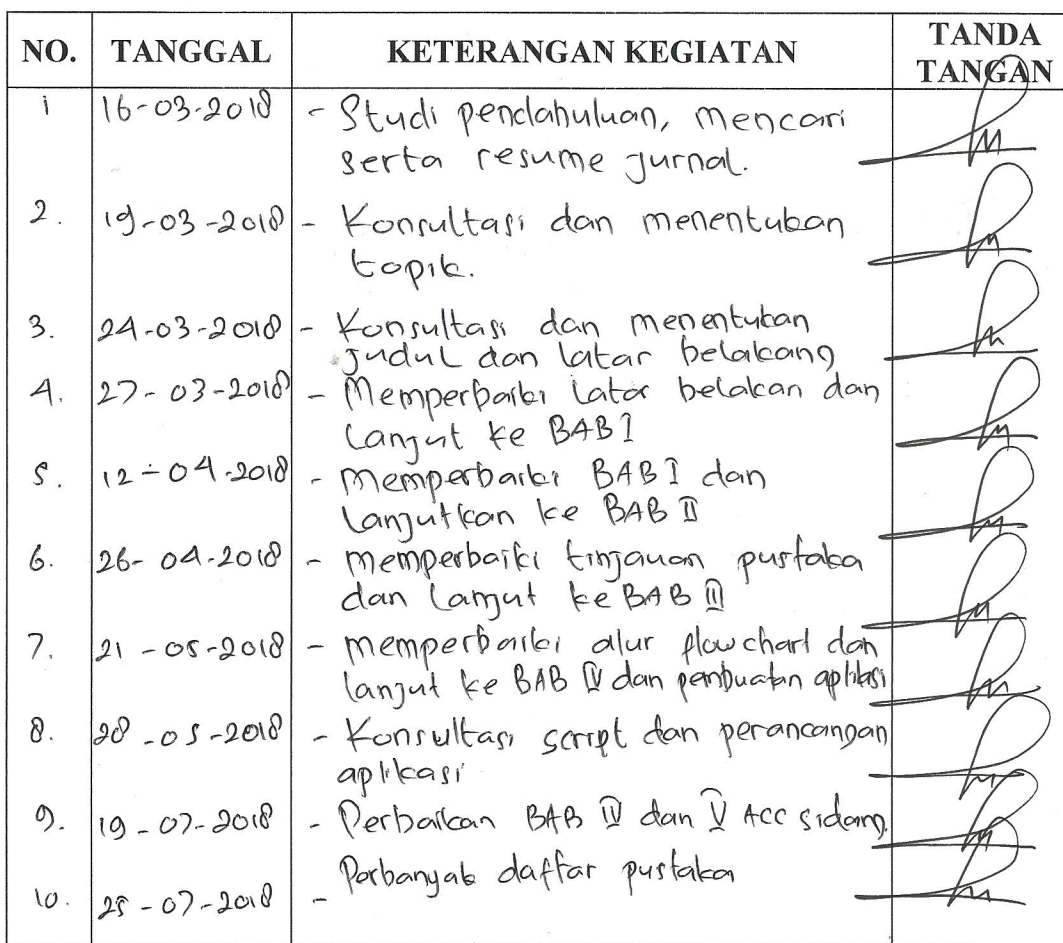 NO. TANGGAL KETERANGAN KEGIATAN TANDA TANGAN
1 16-03-2018 - Studi pendahuluan, mencari
serta resume jurnal.
2. 19-03-2018 - Konsultasi dan menentukan
topik.
3. 24-03-2018 - Konsultasi dan menentukan
judul dan latar belakang
4. 27-03-2018 - Memperbaiki latar belakan dan
lanjut ke BAB I
5. 12-04-2018 - memperbaiki BAB I dan
lanjutkan ke BAB II
6. 26-04-2018 - memperbaiki tinjauan pustaka
dan lanjut ke BAB III
7. 21-05-2018 - memperbaiki alur flowchart dan
lanjut ke BAB IV dan pembuatan aplikasi
8. 28-05-2018 - Konsultasi script dan perancangan
aplikasi
9. 19-07-2018 - Perbaikan BAB IV dan V ACC sidang.
10. 25-07-2018 - Perbanyak daftar pustaka